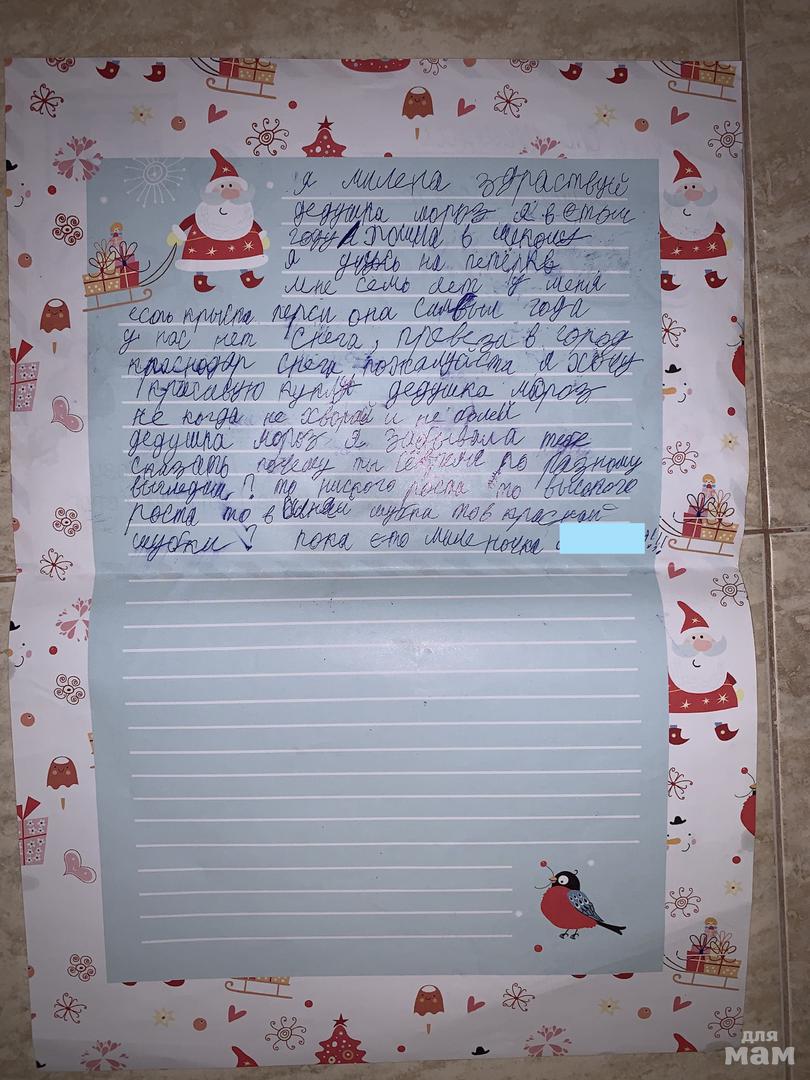 я милена здраствуй
дедушка мороз я в етом
году пошла в школу
я учусь на петёркы
мне семь лет у меня
есть крыса перси она самбый года
у нас нет снега, превези в город
краснодар снега пожалуйста я хочу
красивую куклу дедушка мороз
не когда не хворай и не болей
дедушка мороз я забывала тебе
сказать почему ты всегда по разному
выглядиш? то ниского роста то высокого
роста то в синей шубки то в красной
шубки? пока ето миле ночка
для
мам